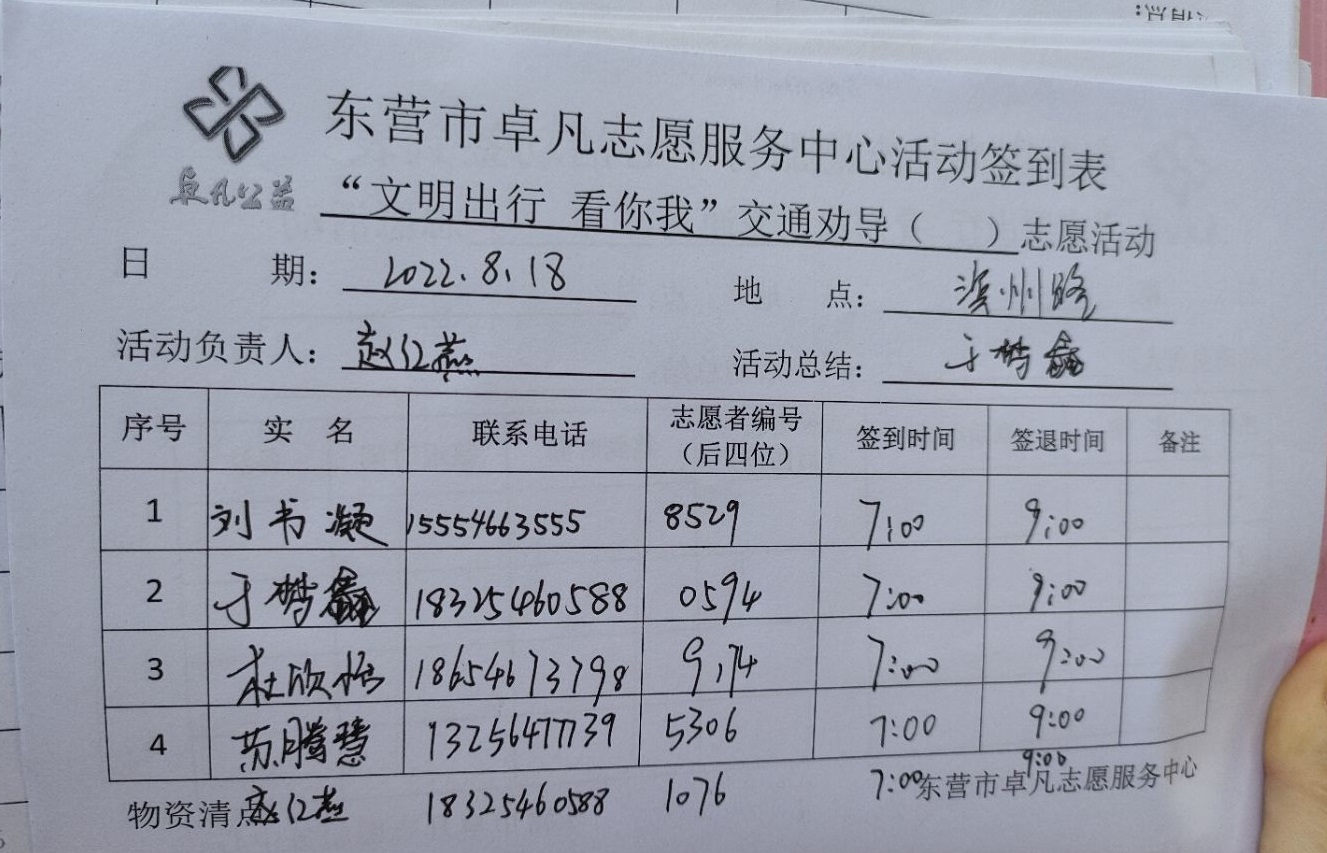 卓凡公益
东营市卓凡志愿服务中心活动签到表
“文明出行 看你我”交通劝导（ ）志愿活动
日 期： 2022.8.18 地 点： 滨州路
活动负责人： 赵红燕 活动总结： 于梦鑫
序号 实 名 联系电话 志愿者编号（后四位） 签到时间 签退时间 备注
1 刘书凝 15554663555 8529 7:00 9:00
2 于梦鑫 18325460588 0594 7:00 9:00
3 杜欣怡 18654673798 9174 7:00 9:00
4 苏腾慧 13256477139 5306 7:00 9:00
赵红燕 18325460588 1076 7:00 9:00
物资清点 东营市卓凡志愿服务中心